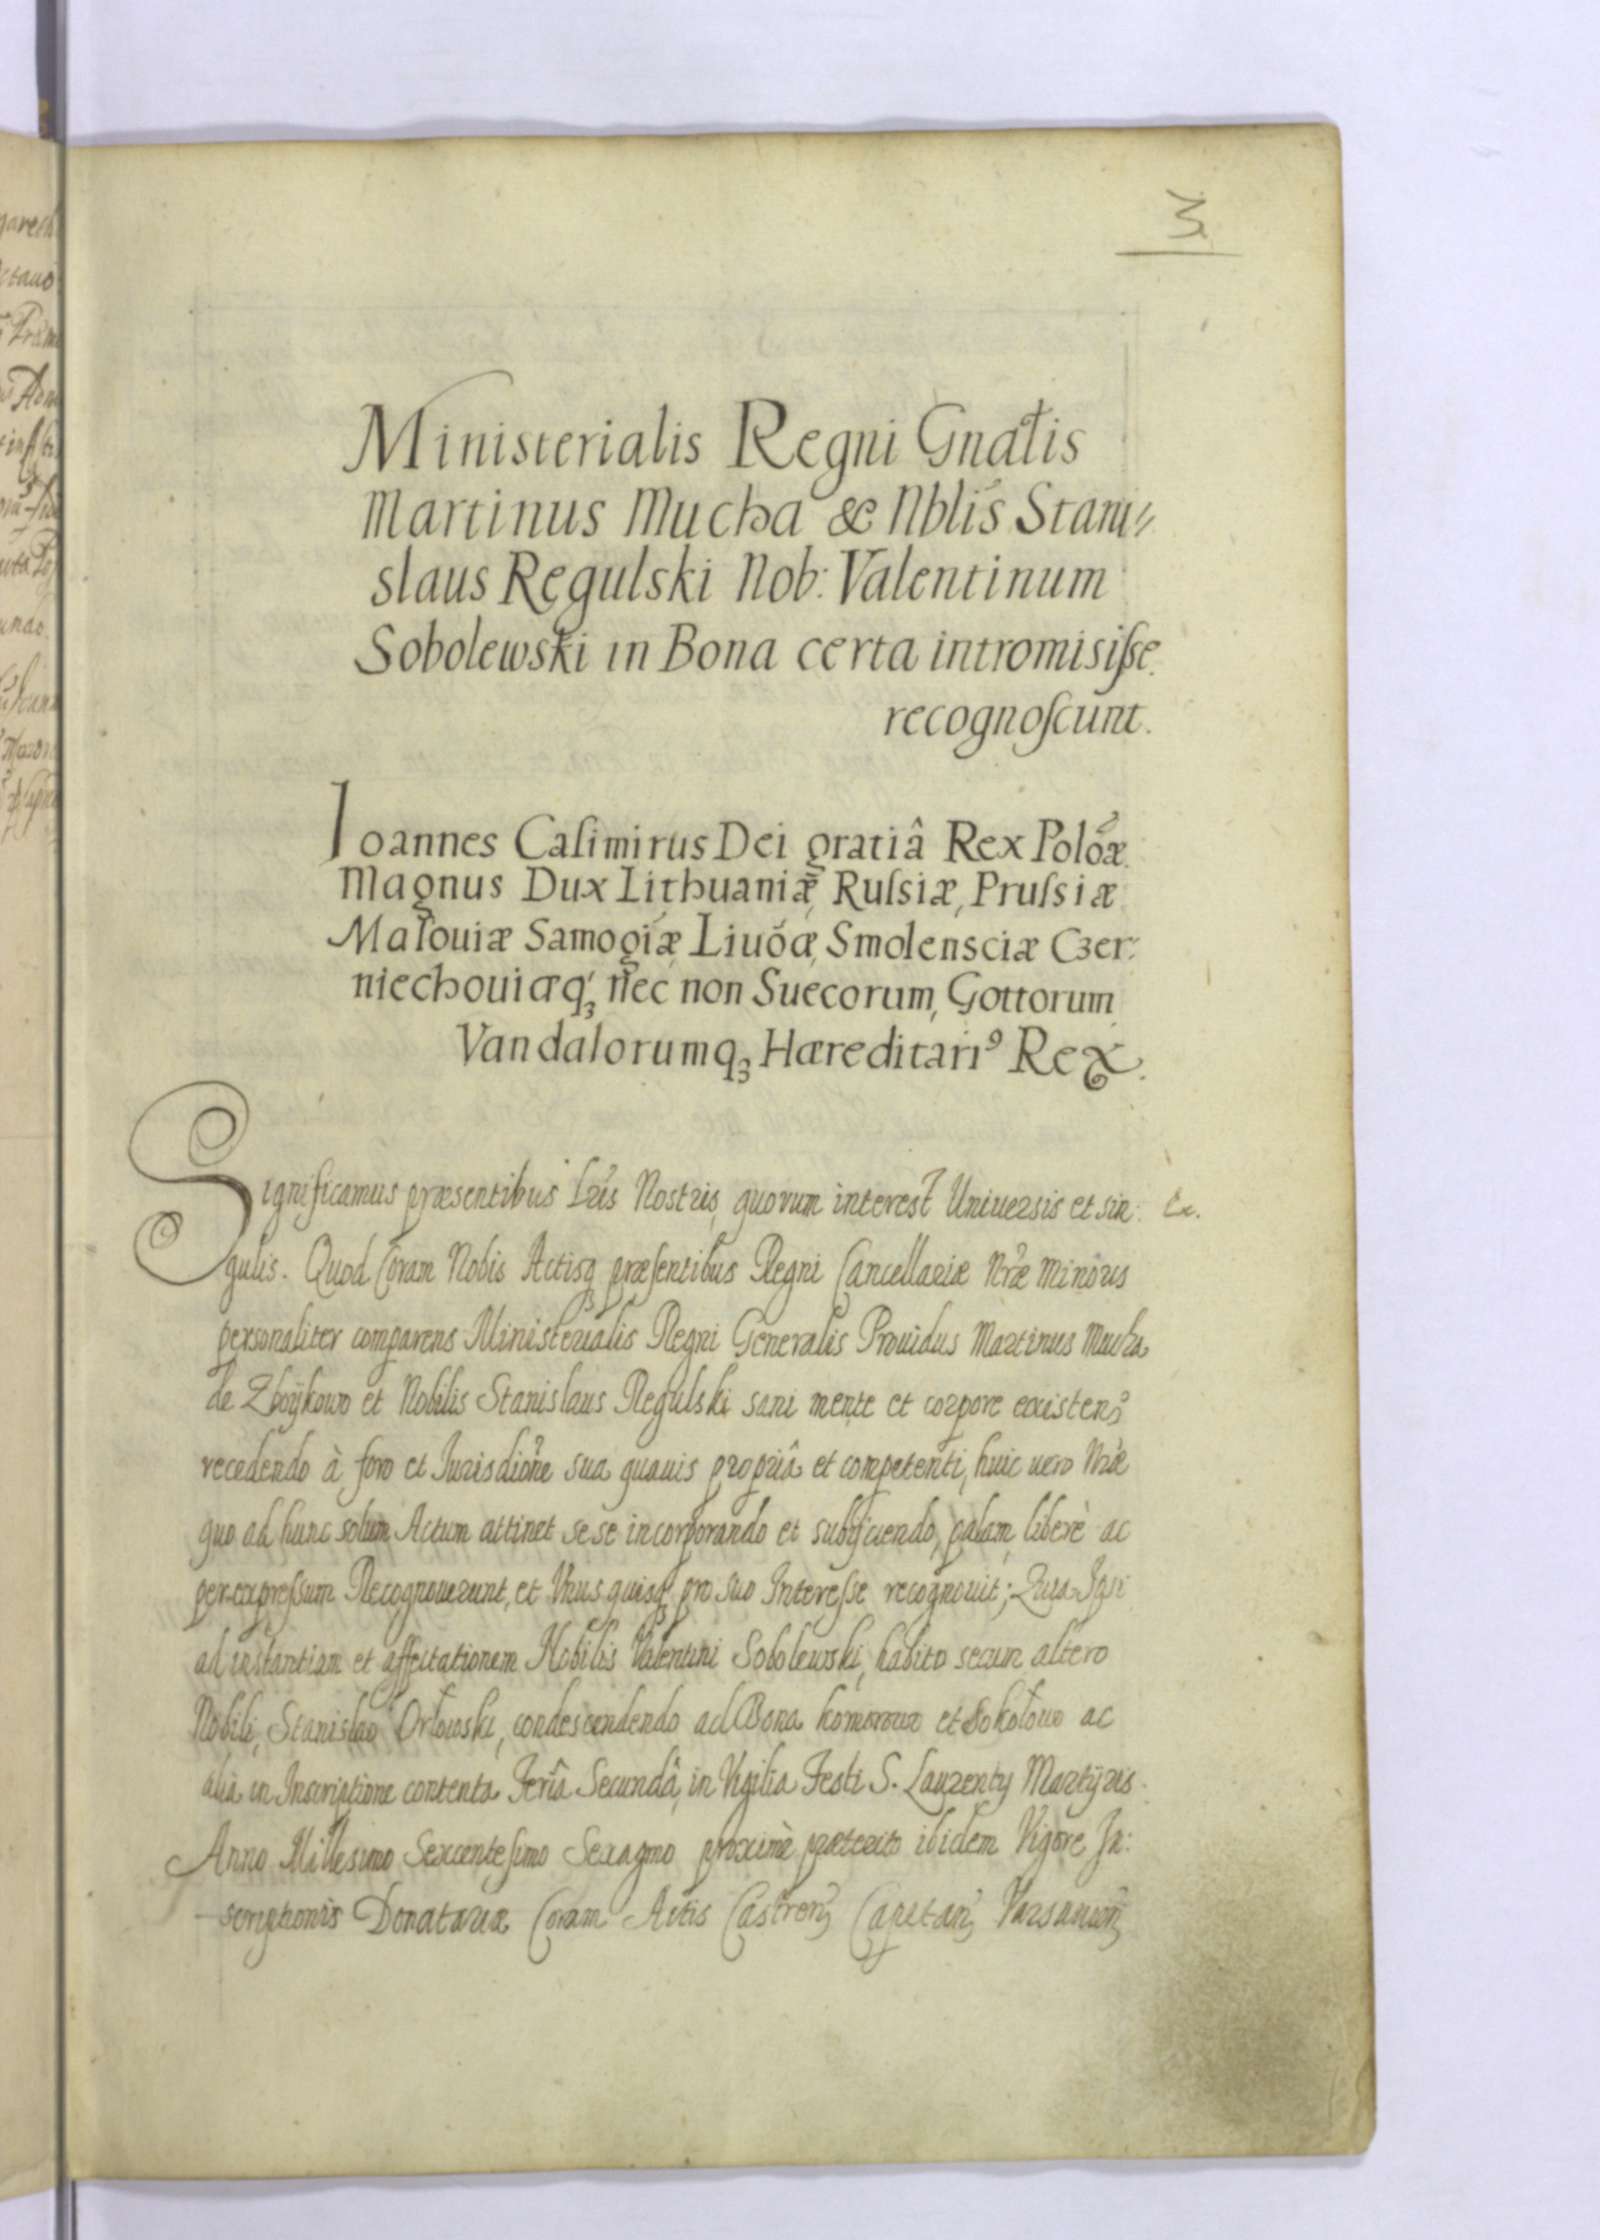 3
Ministerialis Regni Gnãlis
Martinus Mucha & Nblis Stani//
slaus Regulski Nob: Valentinum
Sobolewski in Bona certa intromisiſse
recognoſcunt.
Ioannes Caſimirus Dei gratiâ Rex Poloæ
Magnus Dux Lithuaniæ, Ruſsiæ, Pruſsiæ
Maſouiæ Samogiæ, Liuoæ, Smolensciæ Czer:
niechouiæq3 nec non Suecorum, Gottorum
Vandalorumq3 Hæreditari9 Rex.
Significamus præsentibus Lris Nostris, quorum interest Uniuersis et sin: Ex.
gulis. Quod Coram Nobis Actisq3 præſentibus Regni Cancellariæ Nræ Minoris
personaliter comparens Ministerialis Regni Generalis Prouidus Martinus Mucha
de Zboÿkowo et Nobilis Stanislaus Regulski sani mente et corpore existen3
recedendo à foro et Jurisdione sua quauis propriâ et competenti, huic uero Nræ
quo ad hunc solum Actum attinet sese incorporando et subÿciendo, palam, liberè ac
per expreſsum Recognouerunt, et Vnus quisq3 pro suo Intereſse recognouit; Quia Ipsi
ad instantiam et affectationem Nobilis Valentini Sobolewski, habito secum altero
Nobili, Stanislao Orłowski, condescendendo ad Bona Komorowo et Sokołowo ac
alia in Inscriptione contenta Feriâ Secundâ, in Vigilia Festi S. Laurentÿ Martÿris.
Anno Millesimo Sexcenteſimo Sexagmo proximè præterito ibidem Vigore In:
scriptionis Donatoriæ Coram Actis Castren3 Capitan3 Varsauien3